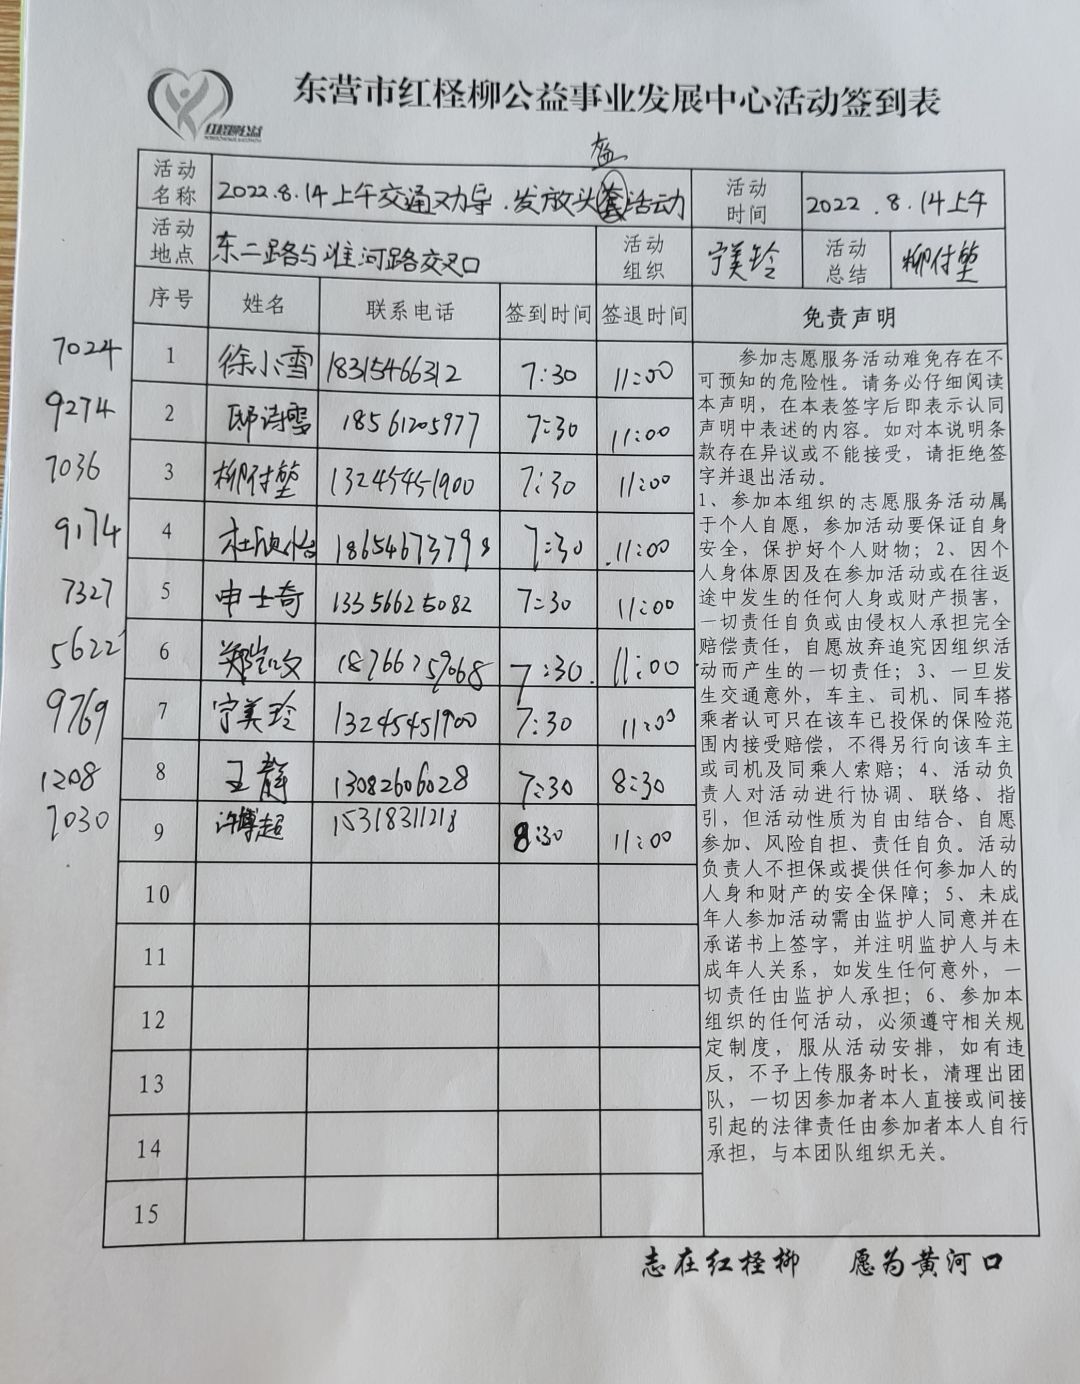 红柽柳公益
东营市红柽柳公益事业发展中心活动签到表
盔
活动名称 2022.8.14上午交通劝导.发放头活动 活动时间 2022.8.14上午
活动地点 东二路与淮河路交叉口 活动组织 宁美玲 活动总结 柳付堃
序号 姓名 联系电话 签到时间 签退时间 免责声明
7024 1 徐小雪 18315466312 7:30 11:00
9274 2 邸诗雪 18561205977 7:30 11:00
7036 3 柳付堃 13245451900 7:30 11:00
9174 4 杜 18654673798 7:30 11:00
7327 5 申士奇 13356625082 7:30 11:00
5622 6 郑 18766759068 7:30 11:00
9769 7 宁美玲 13245451900 7:30 11:00
1208 8 王静 13082606028 7:30 8:30
7030 9 许博超 15318311218 8:30 11:00
10
11
12
13
14
15
参加志愿服务活动难免存在不
可预知的危险性。请务必仔细阅读
本声明，在本表签字后即表示认同
声明中表述的内容。如对本说明条
款存在异议或不能接受，请拒绝签
字并退出活动。
1、参加本组织的志愿服务活动属
于个人自愿，参加活动要保证自身
安全，保护好个人财物；2、因个
人身体原因及在参加活动或在往返
途中发生的任何人身或财产损害，
一切责任自负或由侵权人承担完全
赔偿责任，自愿放弃追究因组织活
动而产生的一切责任；3、一旦发
生交通意外，车主、司机、同车搭
乘者认可只在该车已投保的保险范
围内接受赔偿，不得另行向该车主
或司机及同乘人索赔；4、活动负
责人对活动进行协调、联络、指
引，但活动性质为自由结合、自愿
参加、风险自担、责任自负。活动
负责人不担保或提供任何参加人的
人身和财产的安全保障；5、未成
年人参加活动需由监护人同意并在
承诺书上签字，并注明监护人与未
成年人关系，如发生任何意外，一
切责任由监护人承担；6、参加本
组织的任何活动，必须遵守相关规
定制度，服从活动安排，如有违
反，不予上传服务时长，清理出团
队，一切因参加者本人直接或间接
引起的法律责任由参加者本人自行
承担，与本团队组织无关。
志在红柽柳 愿为黄河口